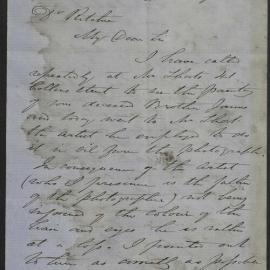 Dr Ritchie
My Dear Sir
I have called
repeatedly at Mr Short's
Collins street to see the painting
of your deceased Brother James
and long went to Mr Short
the Artist he employed to do
it in oil from the photograph.
In consequence of the Artist
(who I presume is the father
of the photographer) not being
informed of the colour of the
hair and eyes he is rather
at a loss. I pointed out
to him as correctly as possible